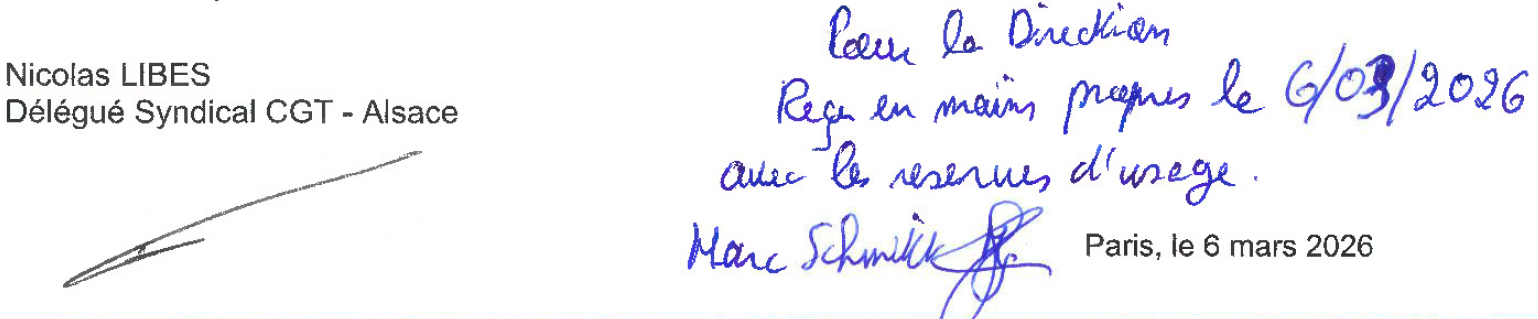 Nicolas LIBES
Délégué Syndical CGT - Alsace
Pour la Direction
Reçu en mains propres le 6/03/2026
avec les réserves d'usage.
Marc Schmitt
Paris, le 6 mars 2026